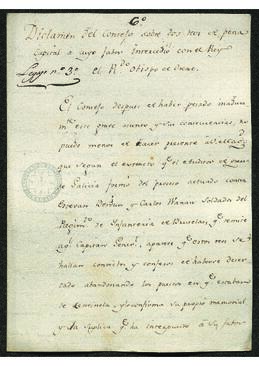 6º
Dictamen del Consejo sobre dos reos de pena
Capital a cuyo favor Intercedió con el Rey
Legajo nº 3º el R.do Obispo de Orense
El Consejo despues de haber pesado madura
m.te este grave asunto y sus consecuencias, no
puede menos de hacer presente al
que segun el extracto q.e
Galicia formó del proceso actuado contra
Estevan y Carlos Soldados del
Regim.to de Infanteria de Bruselas, q.e remite
aq.l Capitan Gener.l, aparece q.e estos reos se
hallan convictos y confesos de haber deser
tado abandonando los puestos en q.e estaban
de Centinela, y lo confirma su propio memorial
y la suplica q.e ha interpuesto à su favor